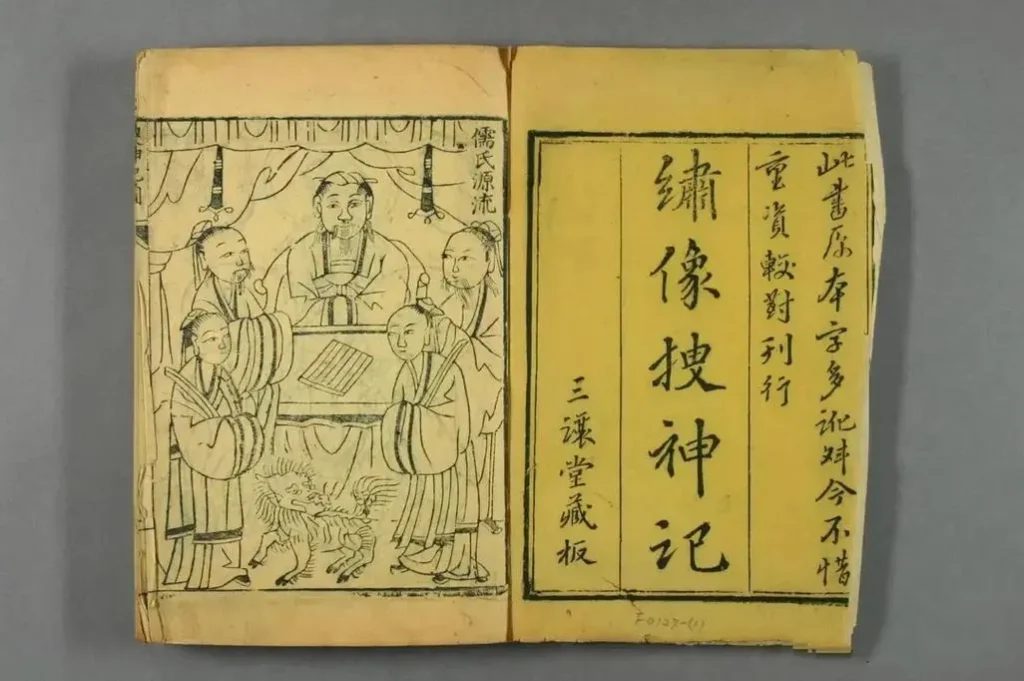 此書原本字多訛舛今不惜
重資較對刊行
繡像搜神記
三讓堂藏板
儒氏源流